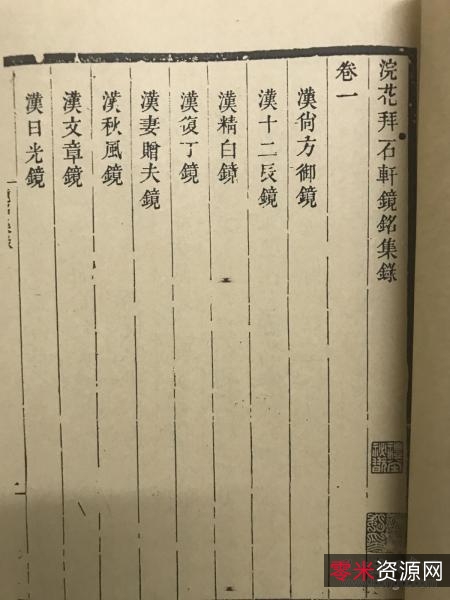 浣花拜石軒鏡銘集錄
卷一
漢尙方御鏡
漢十二辰鏡
漢精白鏡
漢復丁鏡
漢妻贈夫鏡
漢秋風鏡
漢文章鏡
漢日光鏡
零米资源网